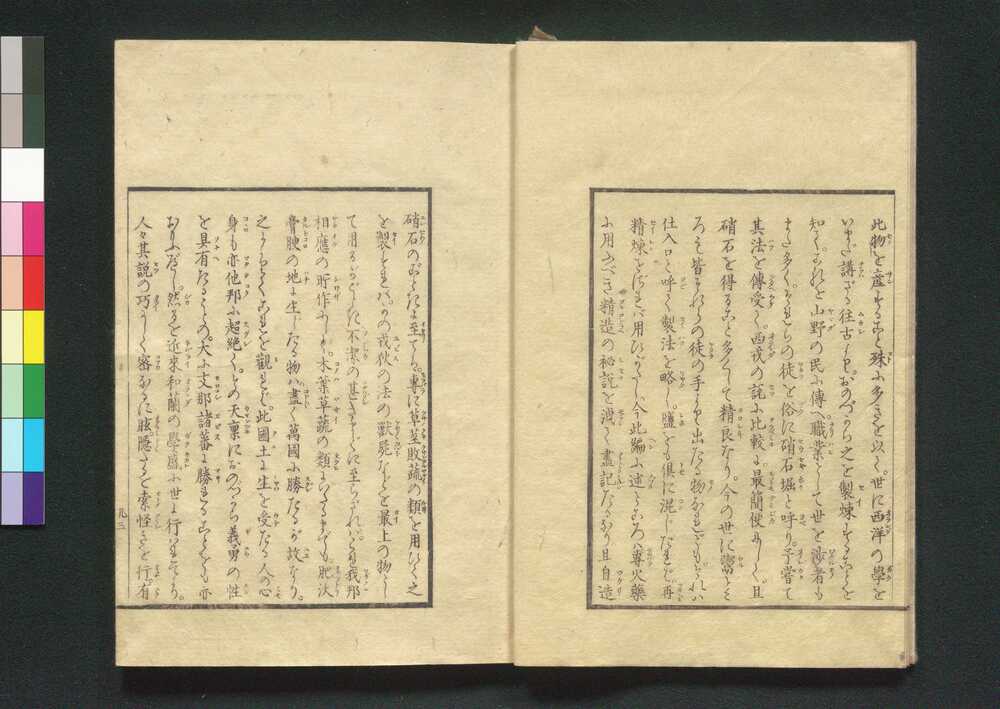 此物を産すること殊に多きを以て。世に西洋の學を
いまだ講ぜざる往古より。おのづから之を製煉することを
知て。これを山野の民に傳へ職業として世を渉る者も
また多く。それらの徒を俗に硝石堀と呼り。予嘗て
其法を傳受て。西戎の説に比較るに最簡便にして。且
硝石を得ること多くして精良なり。今の世に鬻ところ
ろは皆それらの徒の手より出たる物なれども。それハ
仕入口と呼て製法を略し。鹽をも倶に混じたれば。再
精煉せざれバ用ひがたし。今此編に述るところハ専火藥
に用ふべき精造の秘説を洩さず盡記たるなり且自造
硝石のごときに至ては。専に草莖敗蔬の類を用ひて之
を製すれバ。かの戎狄の法の獸屍などを最上の物とし
て用るがごとくに不潔の甚きまでに至らざれバ。これも我邦
相應の所作にして。木葉草蔬の類にいたるまでも。肥沃
膏腴の地に生じたる物ハ盡く萬國に勝たるが故なり。
之によりてこれを觀れバ。此國土に生を受たる人の心
身も亦他邦に超絶て。その天稟におのづから義勇の性
を具有たるものゝ。大に支那諸蕃に勝れることをも亦
おもふべし。然るを近來和蘭の學盛に世に行れてより。
人々其説の巧にして密なるに眩惑